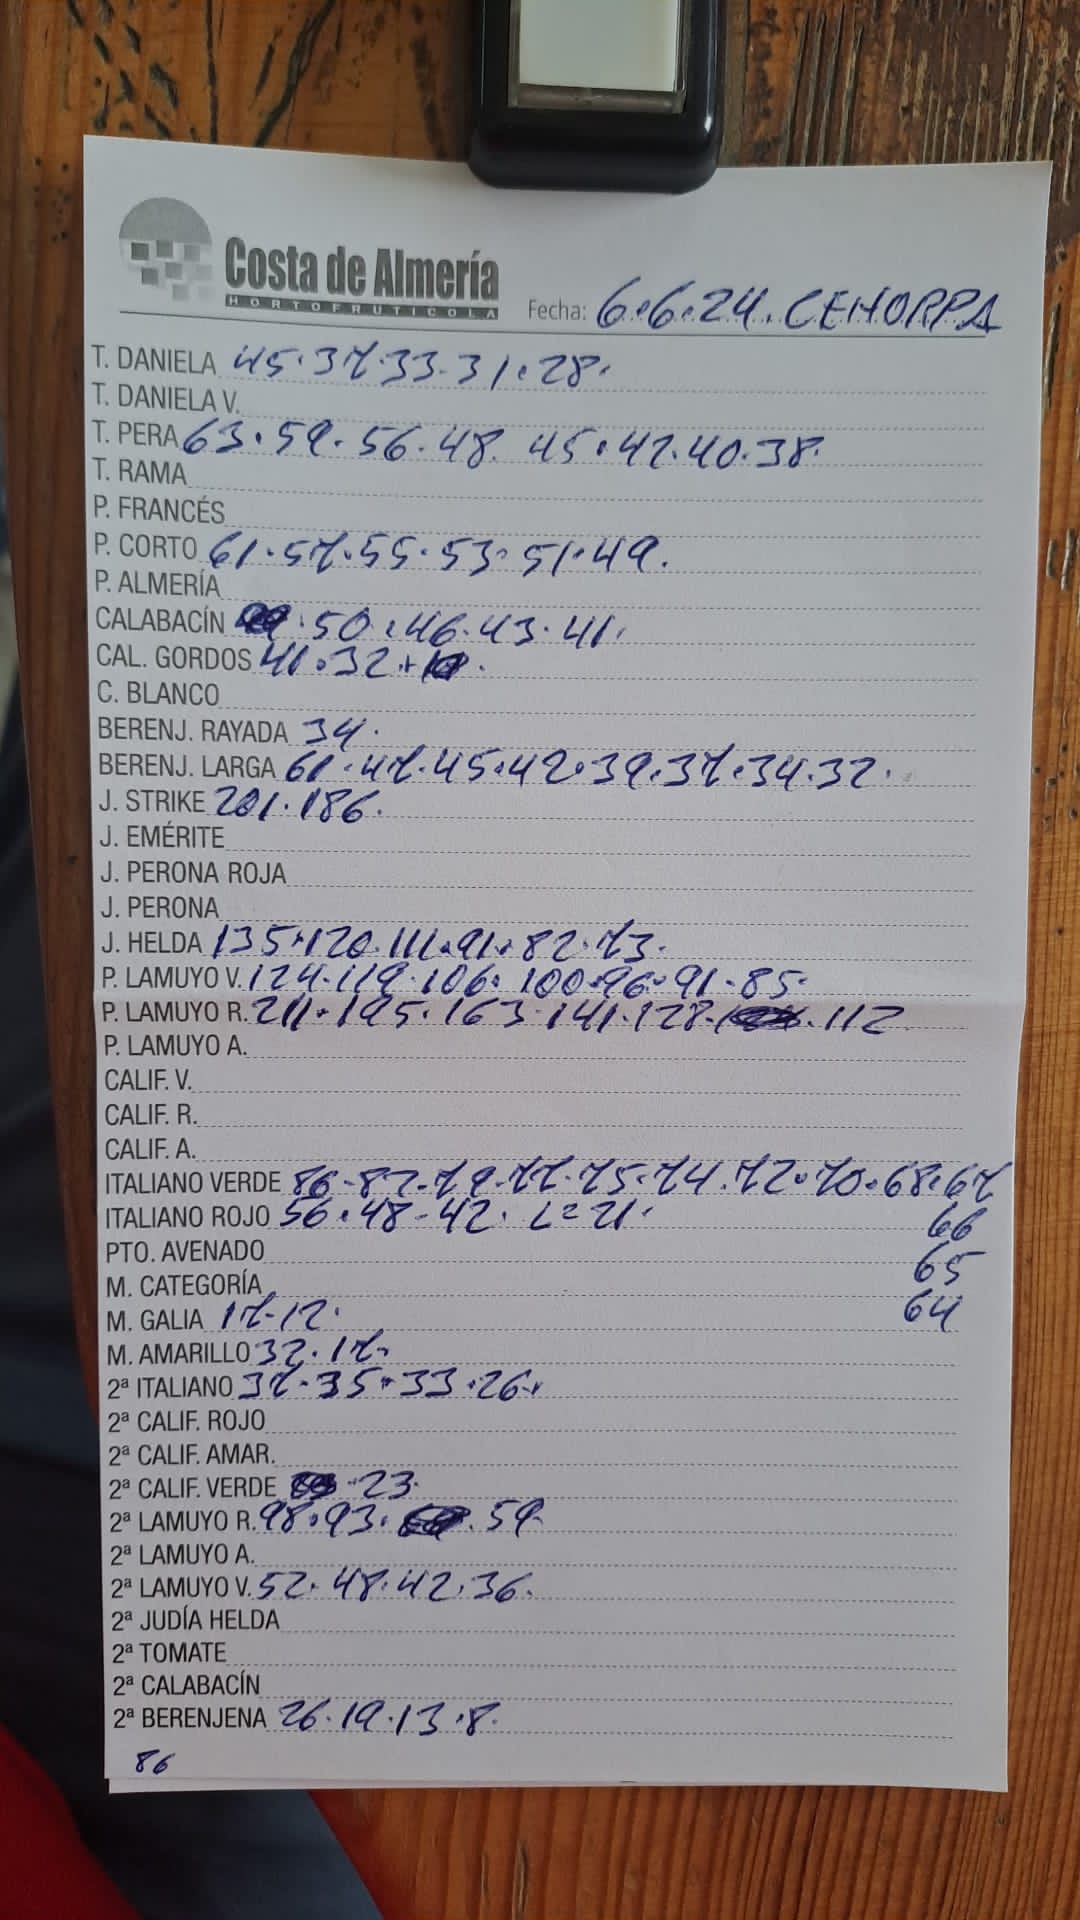 Costa de Almería
HORTOFRUTICOLA
Fecha: 6.6.24. CEHORPA
T. DANIELA 45.37.33.31.28.
T. DANIELA V.
T. PERA 63.59.56.48. 45.42.40.38.
T. RAMA
P. FRANCÉS
P. CORTO 61.57.55.53.51.49.
P. ALMERÍA
CALABACÍN .50.46.43.41.
CAL. GORDOS 41.32.
C. BLANCO
BERENJ. RAYADA 34.
BERENJ. LARGA 61.47.45.42.39.37.34.32.
J. STRIKE 201.186.
J. EMÉRITE
J. PERONA ROJA
J. PERONA
J. HELDA 135.120.111.91.82.73.
P. LAMUYO V. 124.119.106.100.96.91.85.
P. LAMUYO R. 211.195.163.141.128. .112
P. LAMUYO A.
CALIF. V.
CALIF. R.
CALIF. A.
ITALIANO VERDE 86.82.79.77.75.74.72.70.68.67
ITALIANO ROJO 56.48-42. L=21. 66
PTO. AVENADO 65
M. CATEGORÍA 64
M. GALIA 17-12.
M. AMARILLO 32.17.
2ª ITALIANO 37.35.33.26.
2ª CALIF. ROJO
2ª CALIF. AMAR.
2ª CALIF. VERDE .23.
2ª LAMUYO R. 98.93. .59.
2ª LAMUYO A.
2ª LAMUYO V. 52.48.42.36.
2ª JUDÍA HELDA
2ª TOMATE
2ª CALABACÍN
2ª BERENJENA 26.19.13.8.
86